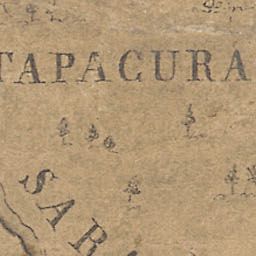 TAPACURA
SARA